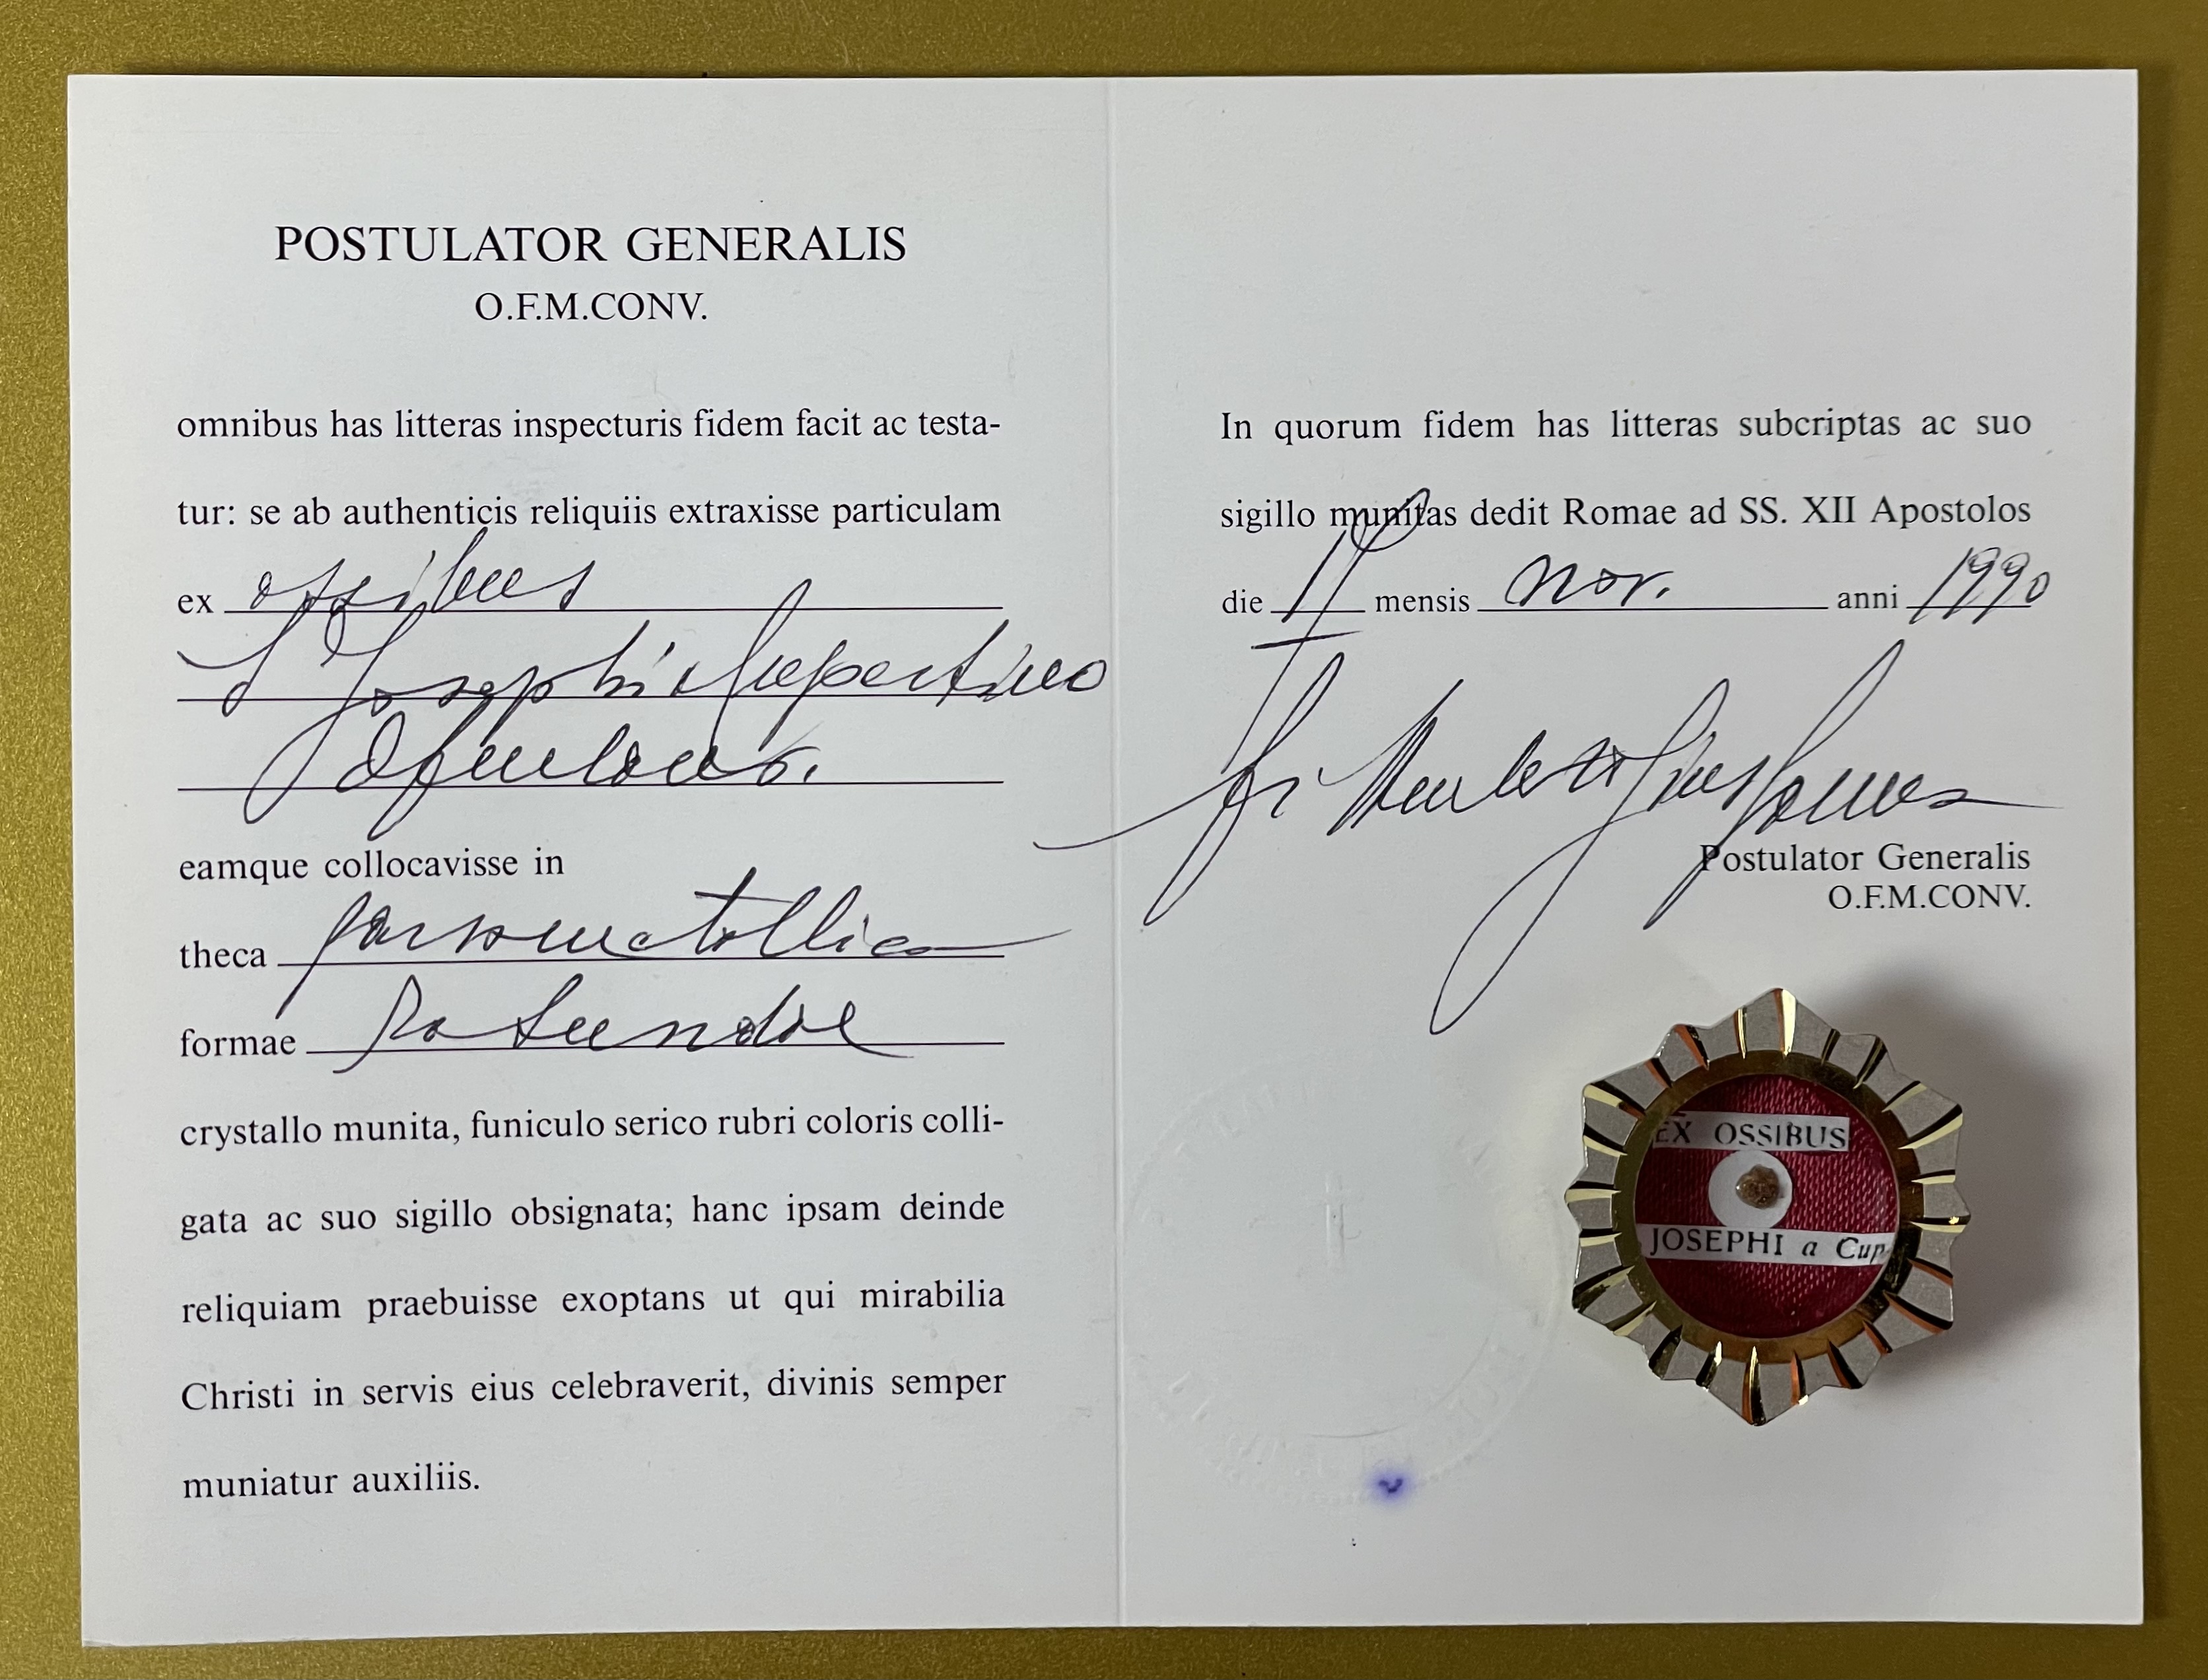 POSTULATOR GENERALIS
O.F.M.CONV.
omnibus has litteras inspecturis fidem facit ac testa-
tur: se ab authenticis reliquiis extraxisse particulam
ex ossibus
S Josephi a Cupertino
eamque collocavisse in
theca
formae Rotundae
crystallo munita, funiculo serico rubri coloris colli-
gata ac suo sigillo obsignata; hanc ipsam deinde
reliquiam praebuisse exoptans ut qui mirabilia
Christi in servis eius celebraverit, divinis semper
muniatur auxiliis.
In quorum fidem has litteras subcriptas ac suo
sigillo munitas dedit Romae ad SS. XII Apostolos
die mensis nov. anni 1990
Postulator Generalis
O.F.M.CONV.
EX OSSIBUS
JOSEPHI a Cup